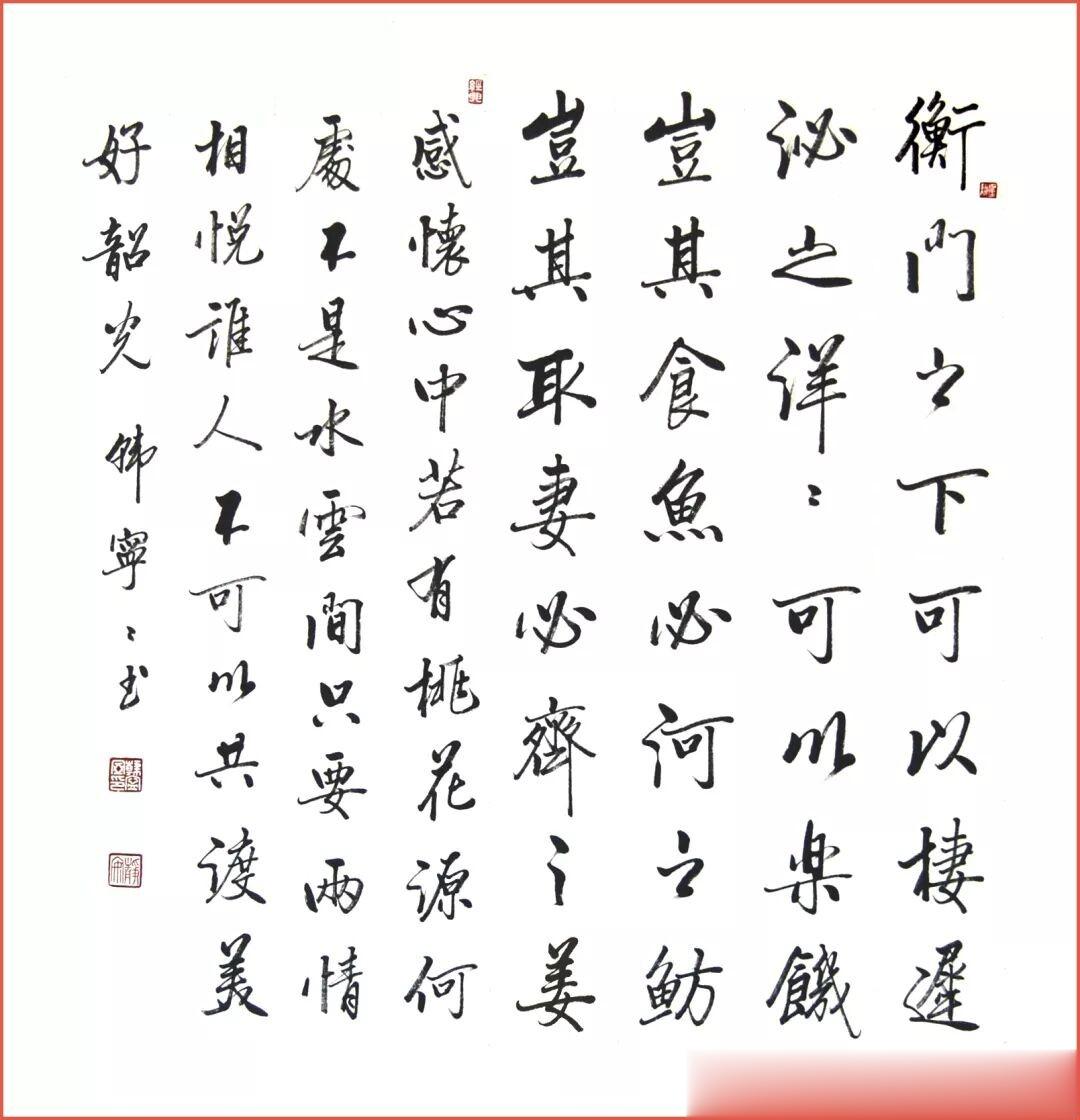 衡門之下可以棲遲
泌之洋〻可以樂饑
豈其食魚必河之魴
豈其取妻必齊之姜
感懷心中若有桃花源何
處不是水雲間只要兩情
相悦誰人不可以共渡美
好韶光 韓寧〻書